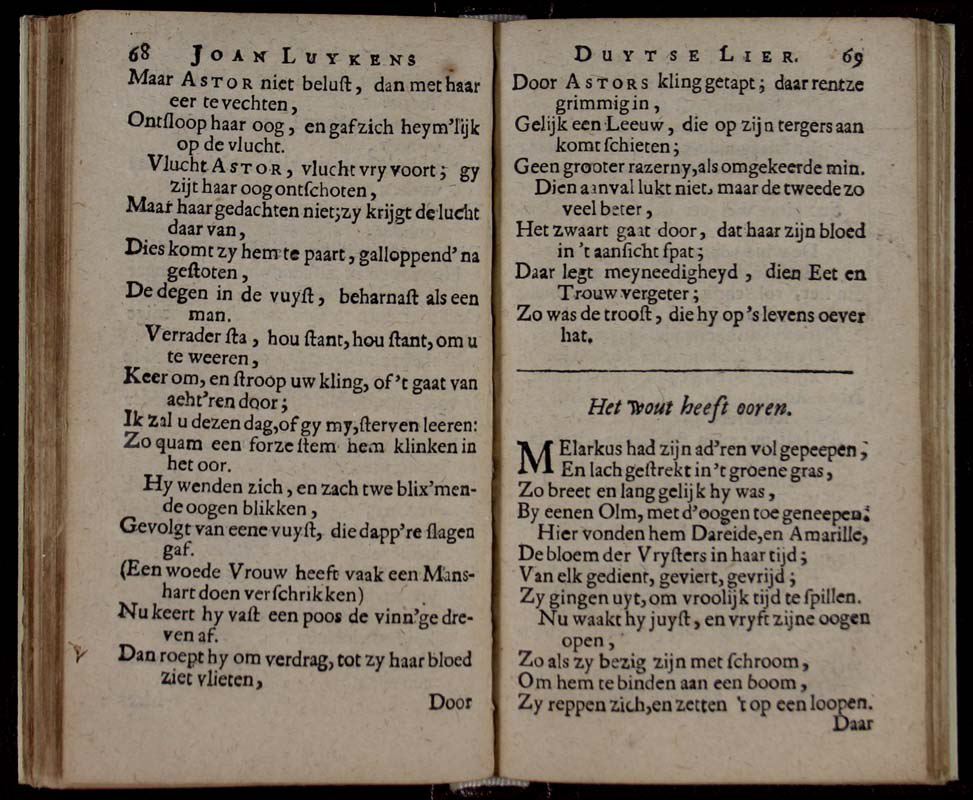 68 JOAN LUYKENS
Maar ASTOR niet beluſt, dan met haar
eer te vechten,
Ontſloop haar oog, en gaf zich heym'lijk
op de vlucht.
Vlucht ASTOR, vlucht vry voort; gy
zijt haar oog ontſchoten,
Maar haar gedachten niet; zy krijgt de lucht
daar van,
Dies komt zy hem te paart, galloppend' na
geſtoten,
De degen in de vuyſt, beharnaſt als een
man.
Verrader ſta, hou ſtant, hou ſtant, om u
te weeren,
Keer om, en ſtroop uw kling, of 't gaat van
aeht'ren door;
Ik zal u dezen dag, of gy my, ſterven leeren:
Zo quam een forze ſtem hem klinken in
het oor.
Hy wenden zich, en zach twe blix'men-
de oogen blikken,
Gevolgt van eene vuyſt, die dapp're ſlagen
gaf.
(Een woede Vrouw heeft vaak een Mans-
hart doen verſchrikken)
Nu keert hy vaſt een poos de vinn'ge dre-
ven af.
Dan roept hy om verdrag, tot zy haar bloed
ziet vlieten,
Door
DUYTSE LIER. 69
Door ASTORS kling getapt; daar rentze
grimmig in,
Gelijk een Leeuw, die op zijn tergers aan
komt ſchieten;
Geen grooter razerny, als omgekeerde min.
Dien aanval lukt niet, maar de tweede zo
veel beter,
Het zwaart gaat door, dat haar zijn bloed
in 't aanſicht ſpat;
Daar legt meyneedigheyd, dien Eet en
Trouw vergeter;
Zo was de trooſt, die hy op 's levens oever
hat.
Het wout heeft ooren.
MElarkus had zijn ad'ren vol gepeepen;
En lach geſtrekt in 't groene gras,
Zo breet en lang gelijk hy was,
By eenen Olm, met d'oogen toe geneepen:
Hier vonden hem Dareide, en Amarille,
De bloem der Vryſters in haar tijd;
Van elk gedient, geviert, gevrijd;
Zy gingen uyt, om vroolijk tijd te ſpillen.
Nu waakt hy juyſt, en vryft zijne oogen
open,
Zo als zy bezig zijn met ſchroom,
Om hem te binden aan een boom,
Zy reppen zich, en zetten 't op een loopen.
Daar